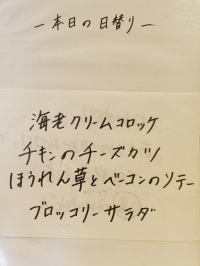 ー本日の日替りー
海老クリームコロッケ
チキンのチーズカツ
ほうれん草とベーコンのソテー
ブロッコリーサラダ